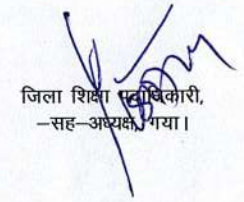 जिला शिक्षा पदाधिकारी,
–सह–अध्यक्ष, गया।